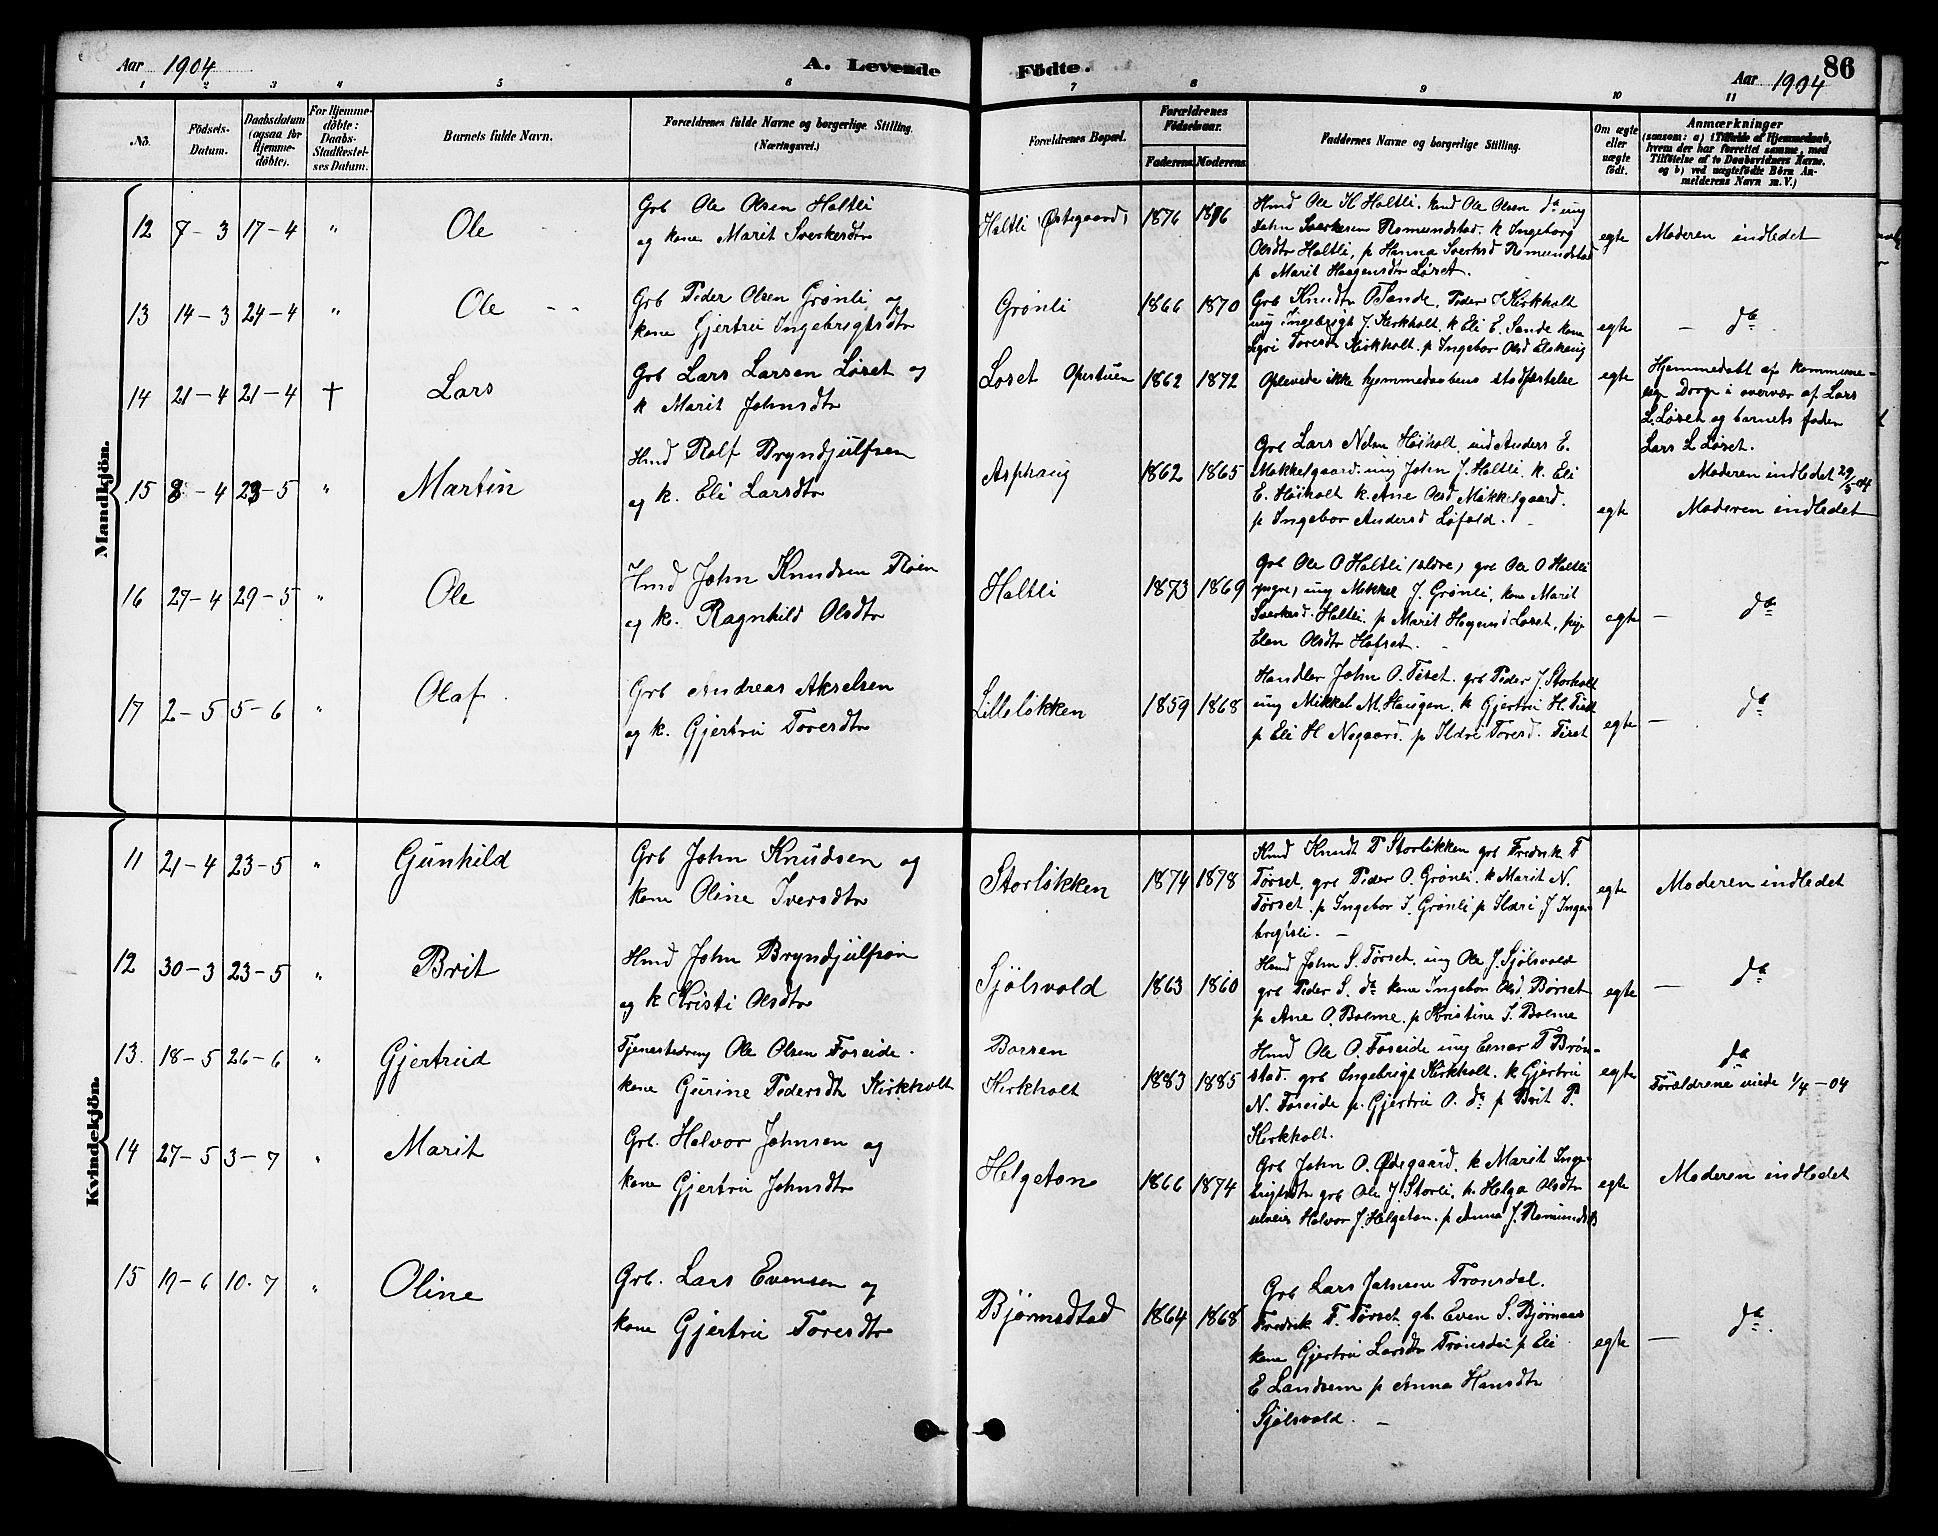 Aar 1904
A. Levende
Fødte.
Aar 1904
86
1 2 3 4 5 6 7 8 9 10 11
No.
Fødsels-
Datum.
Daabsdatum
(ogsaa for
Hjemme-
døbte).
For Hjemme-
døbte:
Daabs-
Stadfæstel-
ses Datum.
Barnets fulde Navn.
Forældrenes fulde Navne og borgerlige Stilling.
(Næringsvei.)
Forældrenes Bopæl.
Forældrenes
Fødselsaar.
Faderens.
Moderens.
Faddernes Navne og borgerlige Stilling.
Om ægte
eller
uægte
født.
Anmærkninger
(saasom: a) i Tilfælde af Hjemmedaab,
hvem der har forrettet samme, med
Tilføielse af to Daabsvidners Navne,
og b) ved uægtefødte Børn An-
melderens Navn m. V.)
Mandkjön.
12 7-3 17-4 " Ole
Grb Ole Olsen Haltli
og kone Marit Sverkesdtr
Haltli (Østegaard) 1876 1876
Hmd Ole H Haltli. kmd Ole Olsen do ung
John Sverkesen Romundstad. k Ingeborg
Olsdtr Haltli, p Hanna Sverksd Romundstad
p Marit Haagensdtr Løset.
egte Moderen indledet
13 14-3 24-4 " Ole
Grb Peder Olsen Grønli og
kone Gjertru Ingebrigtsdtr
Grønli 1866 1870
Grb Knudtr O Sande, Peder J Kirkholt
ung Ingebrigt J. Kirkholt. k Eli E. Sande kone
Sigri Toresdr Kirkholt. p Ingebor Olsd Elshaug
egte — do
14 21-4 21-4 † Lars
Grb Lars Larsen Løset og
k Marit Johnsdtr
Løset Opistuen 1862 1872
Oplevede ikke hjemmedaabens stadfæstelse
egte Hjemmedøbt af kommune-
læge Dorge i overvær af Lars
L. Løset og barnets fader
Lars L Løset.
Moderen indledet 29/5-04
15 8-4 23-5 " Martin
Hmd Rolf Bryndjulfsen
og k. Eli Larsdtr
Asphaug 1862 1865
Grb Lars Nelsn Høiholt, ind Anders E.
Møkkelgaard. ung John J. Haltli. k. Eli
E. Høiholt k. Ane Olsd Møkkelgaard.
p Ingebor Andersd Løfald.
egte Moderen indledet
16 27-4 29-5 " Ole
Hmd John Knudsen Røen
og k. Ragnhild Olsdtr
Haltli 1873 1869
grb Ole O Haltli (eldre) grb Ole O Haltli
yngre) ung Mikkel J. Grønli, kone Marit
Sverkesd. Haltli. p Marit Hagensd Løset, pige
Elen Olsdtr Hafset.
egte — do
17 2-5 5-6 " Olaf
Grb Andreas Akselsen
og k. Gjertru Toresdtr
Lilleløkken 1859 1868
Handler John O. Tiset. grb Peder J. Storholt
ung Mikkel M. Haugen. k Gjertru H. Tiset
p Eli H Negaard. p Ildri Toresd. Tiset
egte — do
Kvindekjön.
11 21-4 23-5 " Gunhild
Grb John Knudsen og
kone Oline Iversdtr
Storløkken 1874 1878
Kmd Knudt P Storløkken grb Fredrik T
Tørset, grb Peder O. Grønli. k Marit N.
Tørset. p Ingebor I. Grønli p Ildri J Inge-
brigtsli.
egte Moderen indledet
12 30-3 23-5 " Brit
Hmd John Bryndjulfsøn
og k Kristi Olsdtr
Sjølsvold 1863 1860
Hmd John S. Tørset, ung Ole J. Sjølsvold
grb Peder S. do kone Ingebor Olsd. Børset
p Ane O. Bolme. p Kristine S. Bolme
egte — do
13. 18-5 26-6 " Gjertrud
Tjenestedreng Ole Olsen Foseide.
kone Gurine Pedersdt Kirkholt
Barsen
Kirkholt 1883 1885
Hmd Ole O. Foseide ung Einar T Brøn-
stad. grb Ingebrigt Kirkholt. k Gjertru
N. Foseide p. Gjertru O. do p Brit P.
Kirkholt.
egte do
Forældrene viede 1/4-04
14 27-5 3-7 " Marit
Grb. Halvor Johnsen og
kone Gjertru Johnsdtr
Helgeton 1866 1874
Grb John O. Ødegaard. k Marit Inge-
brigtsdtr grb Ole J. Storli, k. Helga Olsdtr
selveier Halvor J. Helgeton. p Anna J. Romundst
egte Moderen indledet
15 19-6 10-7 " Oline
Grb. Lars Evensen og
kone Gjertru Toresdtr
Bjørnsdtad 1864 1868
Grb Lars Johnsen Trønsdal.
Fredrik T. Tørset. gb. Even S. Bjørnaas
kone Gjertru Larsdtr Trønsdal p Eli
E Landsem p Anna Hansdtr
Sjølsvold.
egte — do.